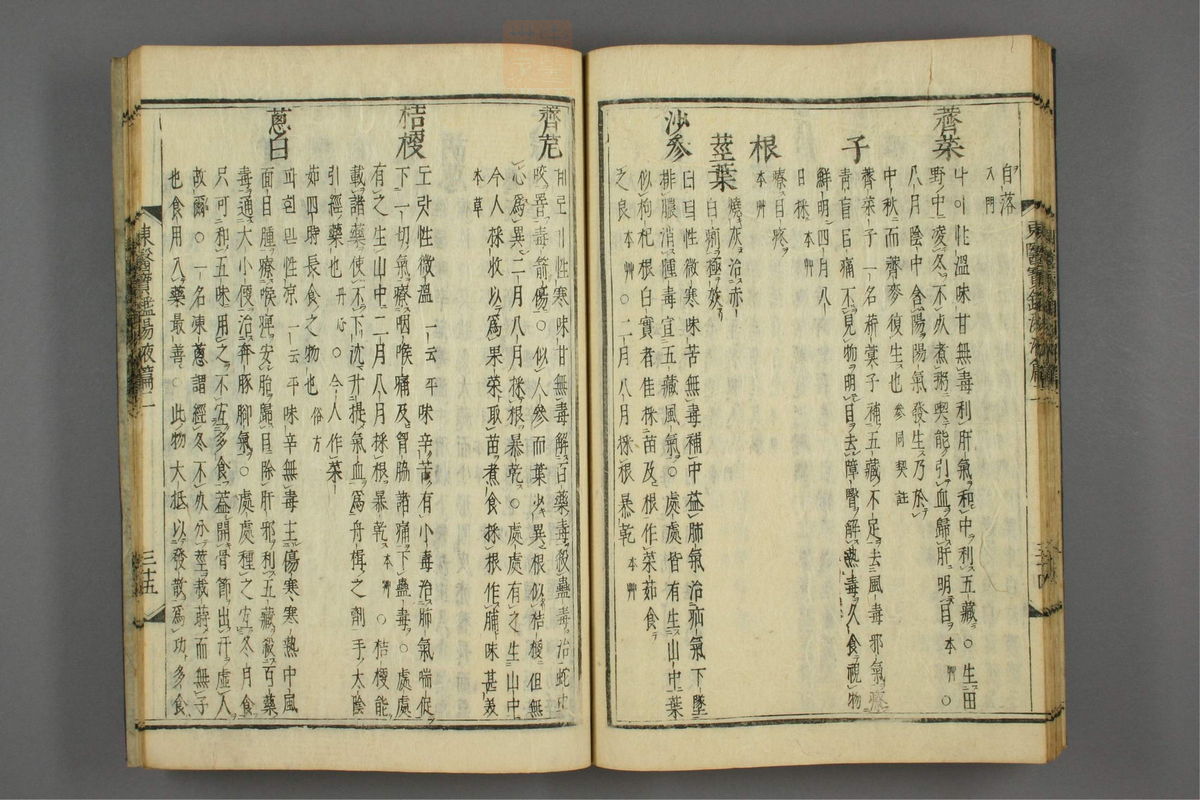 自落入門
薺菜
나이性溫味甘無毒利肝氣和中利五藏○生田
野中凌冬不死煮粥喫能引血歸肝明目本艸○
八月陰中含陽陽氣發生乃於
中秋而薺麥復生也參同契註
子
薺菜子一名菥蓂子補五藏不足去風毒邪氣療
青盲目痛不見物明目去障翳解熱毒久食視物
鮮明四月八
日採本艸
根
療目疼
本艸
莖葉
燒灰治赤
白痢極效
沙參
더덕性微寒味苦無毒補中益肺氣治疝氣下墜
排膿消腫毒宣五藏風氣○處處皆有生山中葉
似枸杞根白實者佳採苗及根作菜茹食
之良本艸○二月八月採根暴乾
東醫寶鑑湯液篇二
三十四
薺苨
계로기性寒味甘無毒解百藥毒殺蠱毒治蛇虫
咬署毒箭傷○似人參而葉少異根似桔梗但無
心爲異二月八月採根暴乾○處處有之生山中
今人採收以爲果菜取苗煮食採根作脯味甚美
本草
桔梗
도랏性微溫一云平味辛苦有小毒治肺氣喘促
下一切氣療咽喉痛及胷脇諸痛下蠱毒○處處
有之生山中二月八月採根暴乾本艸○桔梗能
載諸藥使不下沈升提氣血爲舟楫之劑手太陰
引經藥也丹心○今人作菜
茹四時長食之物也俗方
蔥白
파흰믿性凉一云平味辛無毒主傷寒寒熱中風
面目腫療喉痺安胎歸目除肝邪利五藏殺百藥
毒通大小便治奔豚脚氣○處處種之宜冬月食
只可和五味用之不宜多食葢開骨節出汗虛人
故爾○一名凍蔥謂經冬不死分莖栽蒔而無子
也食用入藥最善○此物大抵以發散爲功多食
東醫寶鑑湯液篇二
三十五